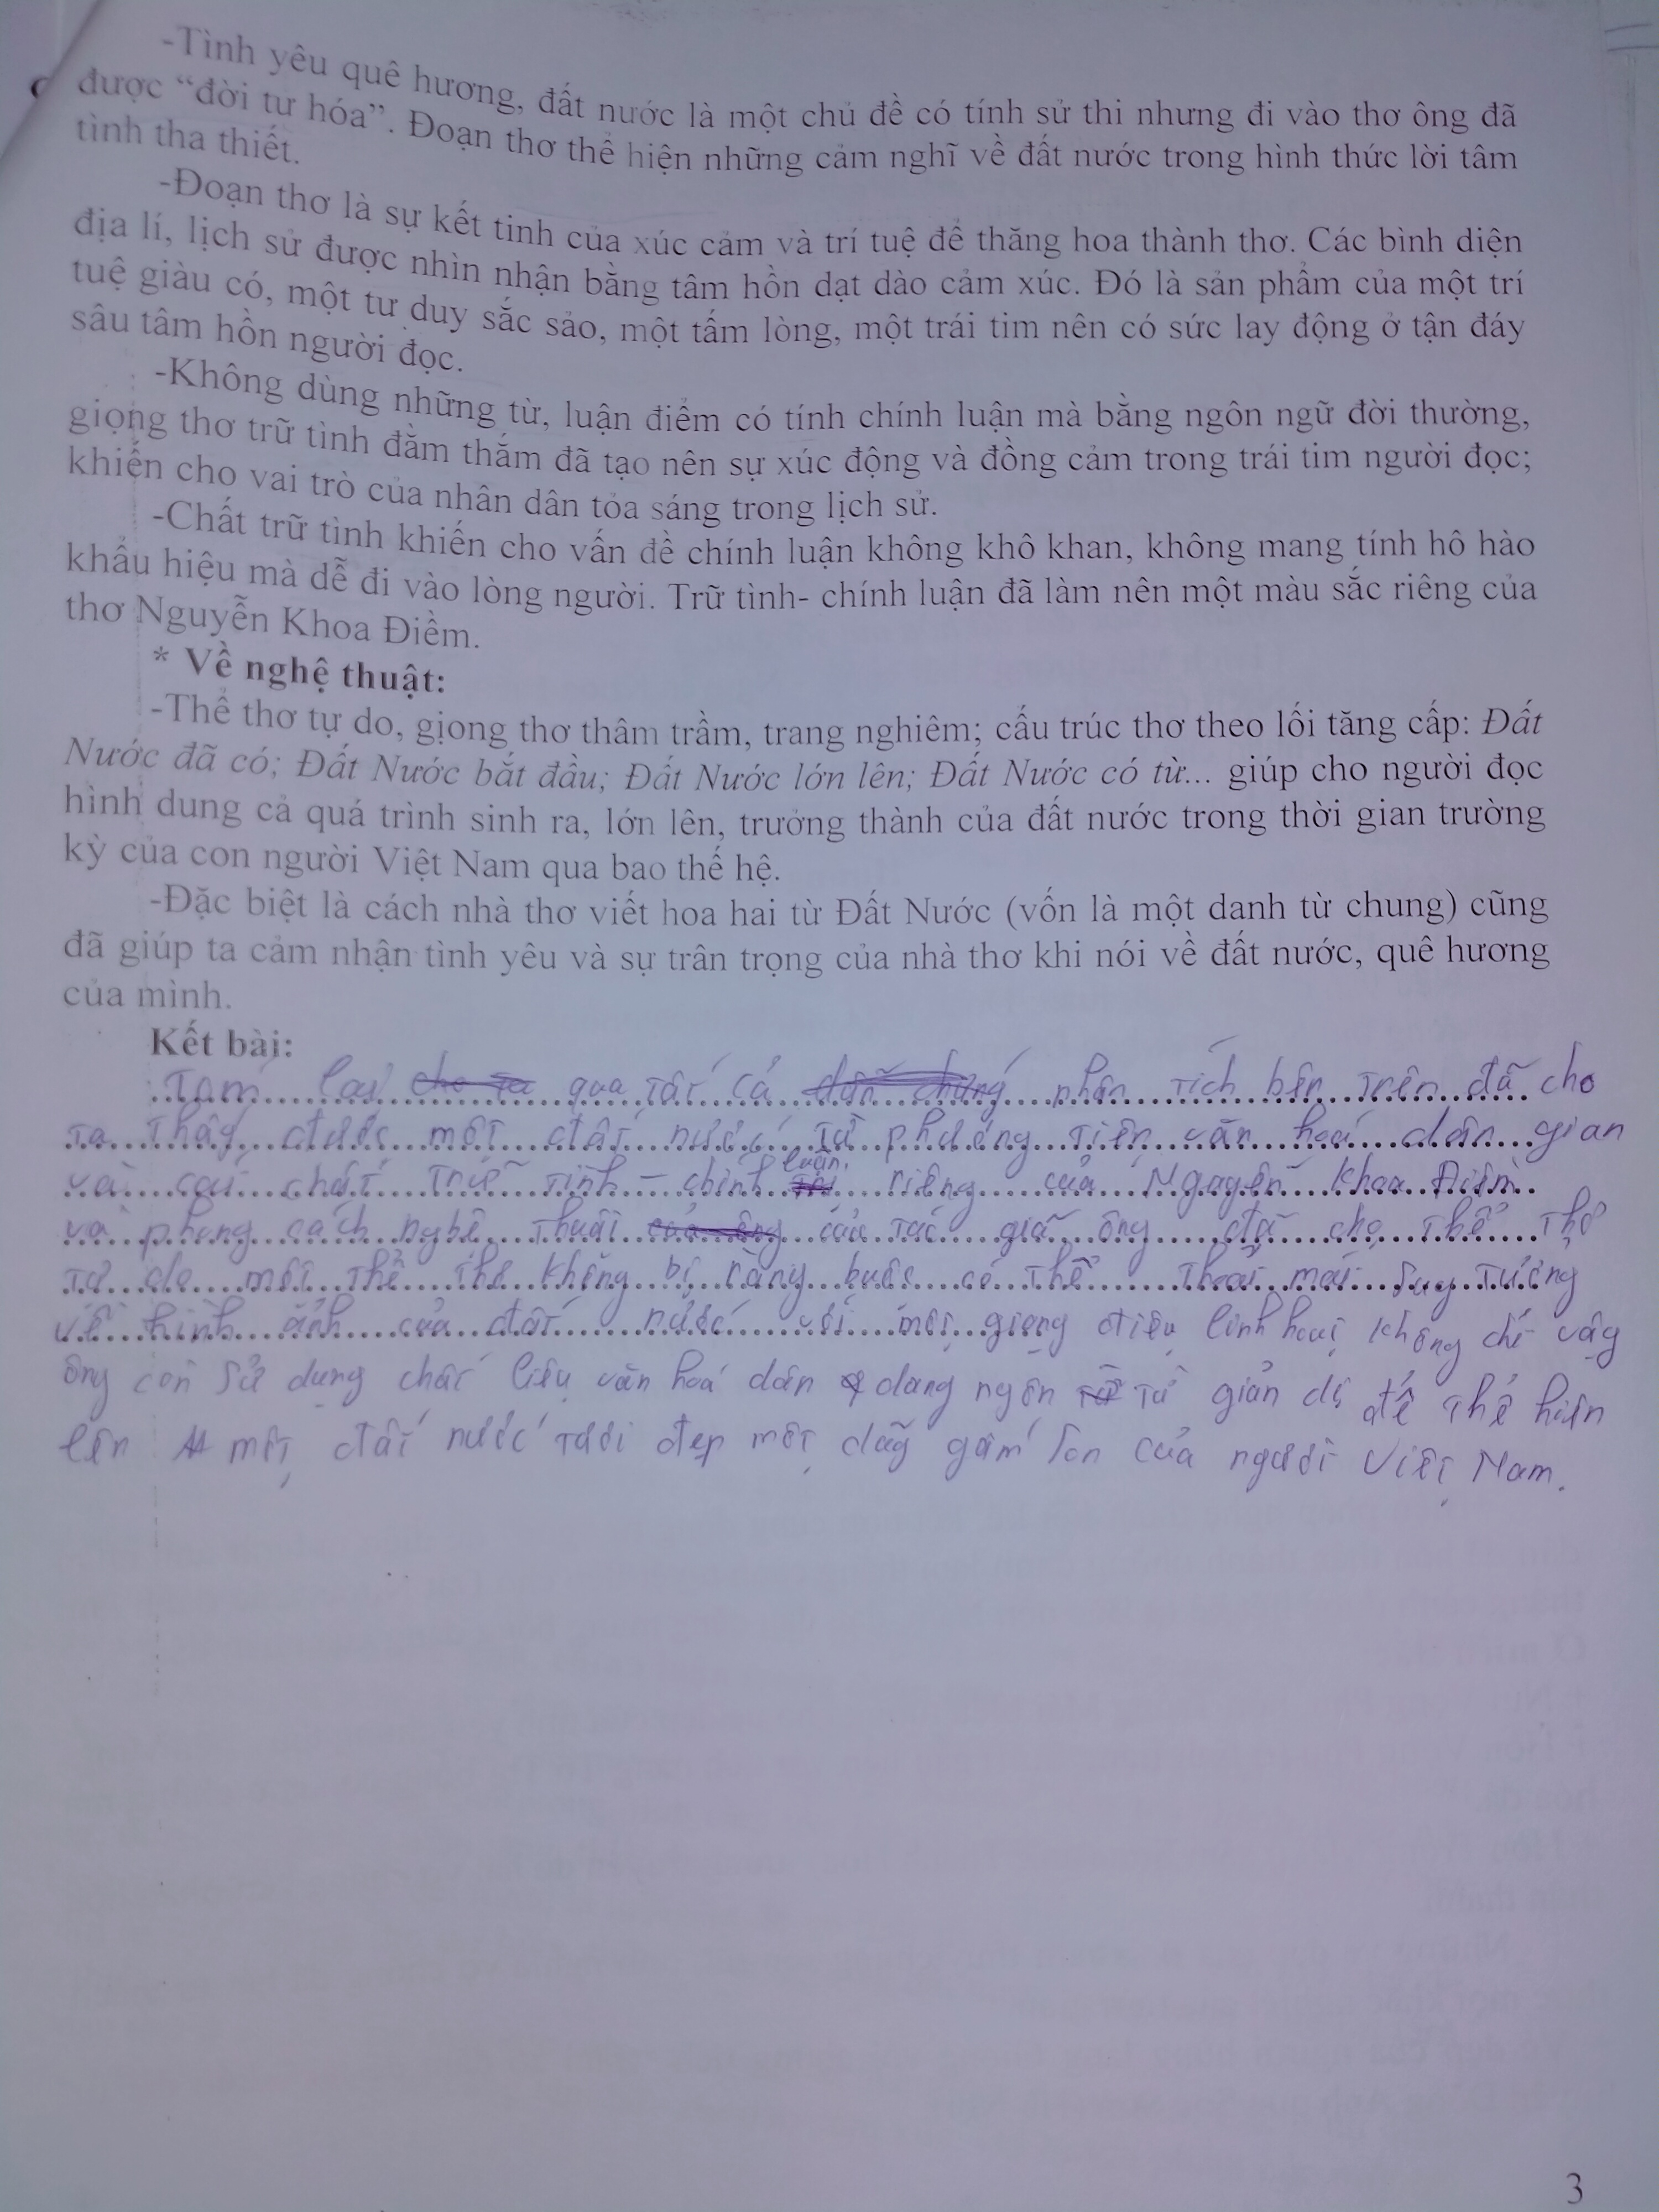 -Tình yêu quê hương, đất nước là một chủ đề có tính sử thi nhưng đi vào thơ ông đã
được “đời tư hóa”. Đoạn thơ thể hiện những cảm nghĩ về đất nước trong hình thức lời tâm
tình tha thiết.
-Đoạn thơ là sự kết tinh của xúc cảm và trí tuệ để thăng hoa thành thơ. Các bình diện
địa lí, lịch sử được nhìn nhận bằng tâm hồn dạt dào cảm xúc. Đó là sản phẩm của một trí
tuệ giàu có, một tư duy sắc sảo, một tấm lòng, một trái tim nên có sức lay động ở tận đáy
sâu tâm hồn người đọc.
-Không dùng những từ, luận điểm có tính chính luận mà bằng ngôn ngữ đời thường,
giọng thơ trữ tình đằm thắm đã tạo nên sự xúc động và đồng cảm trong trái tim người đọc;
khiến cho vai trò của nhân dân tỏa sáng trong lịch sử.
-Chất trữ tình khiến cho vấn đề chính luận không khô khan, không mang tính hô hào
khẩu hiệu mà dễ đi vào lòng người. Trữ tình- chính luận đã làm nên một màu sắc riêng của
thơ Nguyễn Khoa Điềm.
* Về nghệ thuật:
-Thể thơ tự do, giọng thơ thâm trầm, trang nghiêm; cấu trúc thơ theo lối tăng cấp: Đất
Nước đã có; Đất Nước bắt đầu; Đất Nước lớn lên; Đất Nước có từ... giúp cho người đọc
hình dung cả quá trình sinh ra, lớn lên, trưởng thành của đất nước trong thời gian trường
kỳ của con người Việt Nam qua bao thế hệ.
-Đặc biệt là cách nhà thơ viết hoa hai từ Đất Nước (vốn là một danh từ chung) cũng
đã giúp ta cảm nhận tình yêu và sự trân trọng của nhà thơ khi nói về đất nước, quê hương
của mình.
Kết bài:
Tóm lại qua tất cả phân tích bên trên đã cho
ta thấy được một đất nước từ phương tiện văn hoá dân gian
và cái chất trữ tình – chính luận riêng của Nguyễn Khoa Điềm
và phong cách nghệ thuật của tác giả ông đã cho thể thơ
tự do một thể thơ không bị ràng buộc có thể thoải mái suy tưởng
về hình ảnh của đất nước với một giọng điệu linh hoạt không chỉ vậy
ông còn sử dụng chất liệu văn hoá dân dang ngôn từ giản dị để thể hiện
lên một đất nước tươi đẹp một dãy gấm son của người Việt Nam.
3